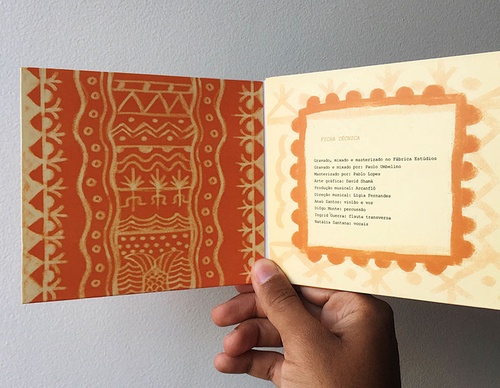 FICHA TÉCNICA
Gravado, mixado e masterizado no Fábrica Estúdios
Gravado e mixado por: Paulo Umbelino
Masterizado por: Fabio Lopes
Arte gráfica: David Shamá
musical:
Direção musical: Ligia Fernandes
Anas Santos: violão e voz
Diego Monte: percussão
Ingrid Guerra: flauta transversa
Natália Santana: vocais